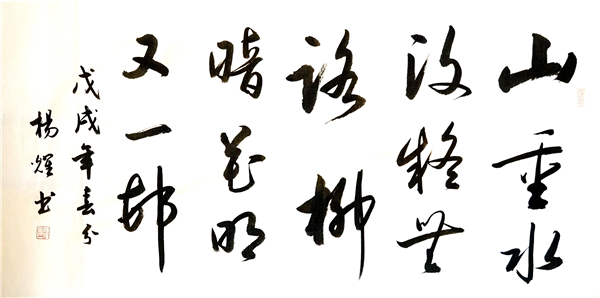 山重水
復疑無
路柳
暗花明
又一邨
戊戌年春分
楊 书